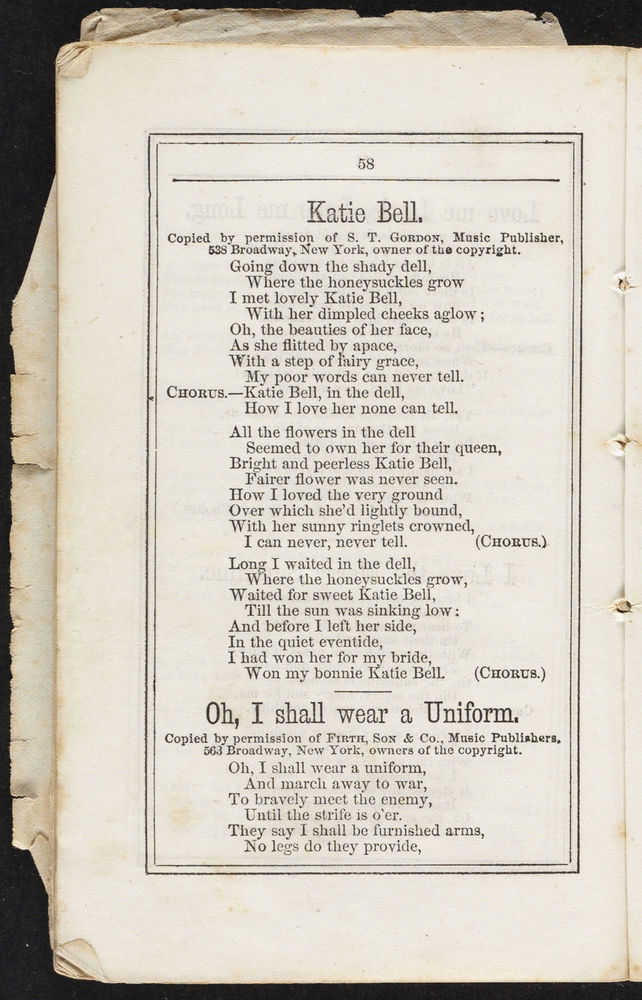 58
Katie Bell.
Copied by permission of S. T. GORDON, Music Publisher,
538 Broadway, New York, owner of the copyright.
Going down the shady dell,
Where the honeysuckles grow
I met lovely Katie Bell,
With her dimpled cheeks aglow;
Oh, the beauties of her face,
As she flitted by apace,
With a step of fairy grace,
My poor words can never tell.
CHORUS.—Katie Bell, in the dell,
How I love her none can tell.
All the flowers in the dell
Seemed to own her for their queen,
Bright and peerless Katie Bell,
Fairer flower was never seen.
How I loved the very ground
Over which she'd lightly bound,
With her sunny ringlets crowned,
I can never, never tell. (CHORUS.)
Long I waited in the dell,
Where the honeysuckles grow,
Waited for sweet Katie Bell,
Till the sun was sinking low:
And before I left her side,
In the quiet eventide,
I had won her for my bride,
Won my bonnie Katie Bell. (CHORUS.)
Oh, I shall wear a Uniform.
Copied by permission of FIRTH, SON & Co., Music Publishers,
563 Broadway, New York, owners of the copyright.
Oh, I shall wear a uniform,
And march away to war,
To bravely meet the enemy,
Until the strife is o'er.
They say I shall be furnished arms,
No legs do they provide,